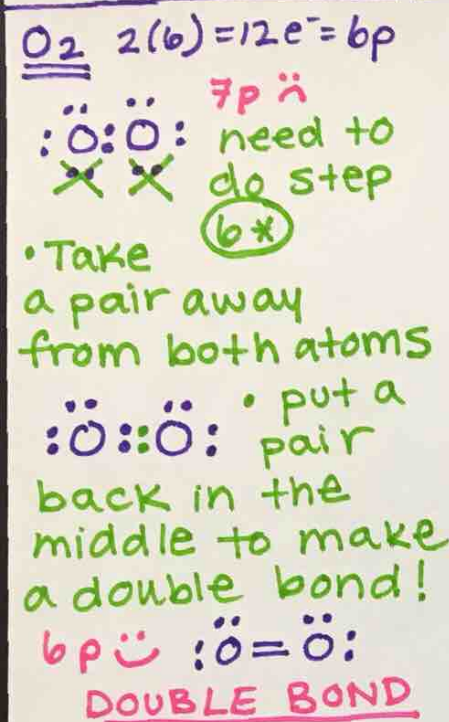 O2 2(6)=12e⁻=6p
7p ¨⌢
:Ö:Ö: need to
do step
6*
• Take
a pair away
from both atoms
:Ö::Ö: • put a
pair
back in the
middle to make
a double bond!
6p ¨⌣ :Ö=Ö:
DOUBLE BOND